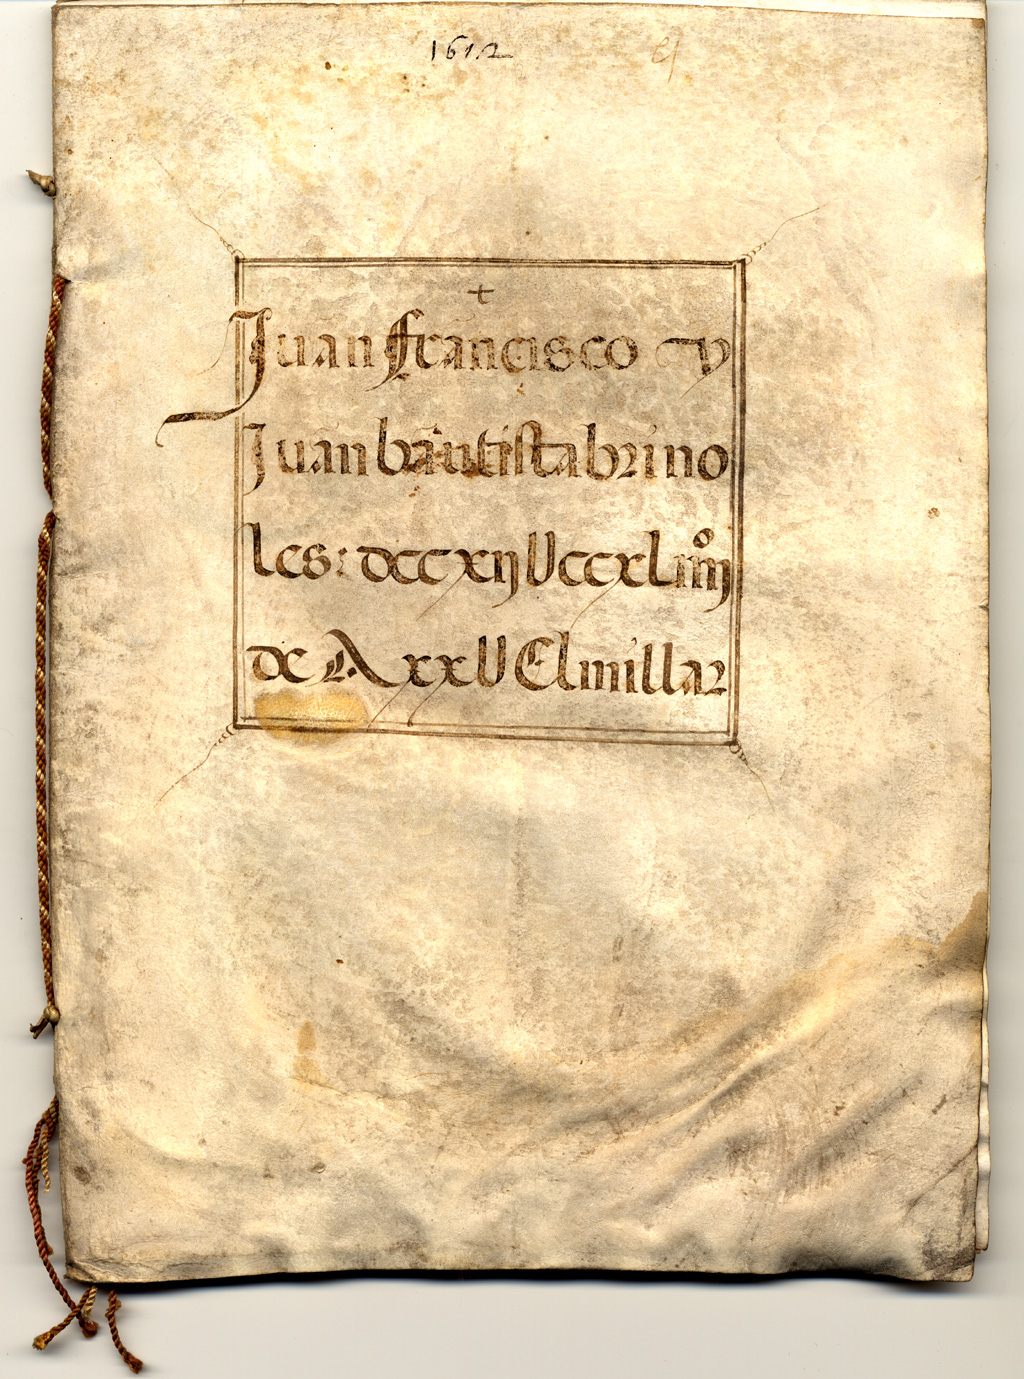 1612
+
Juan francisco y
Juan bautista brino
les: dccxijUccxLiiijº
de A xxU El millar